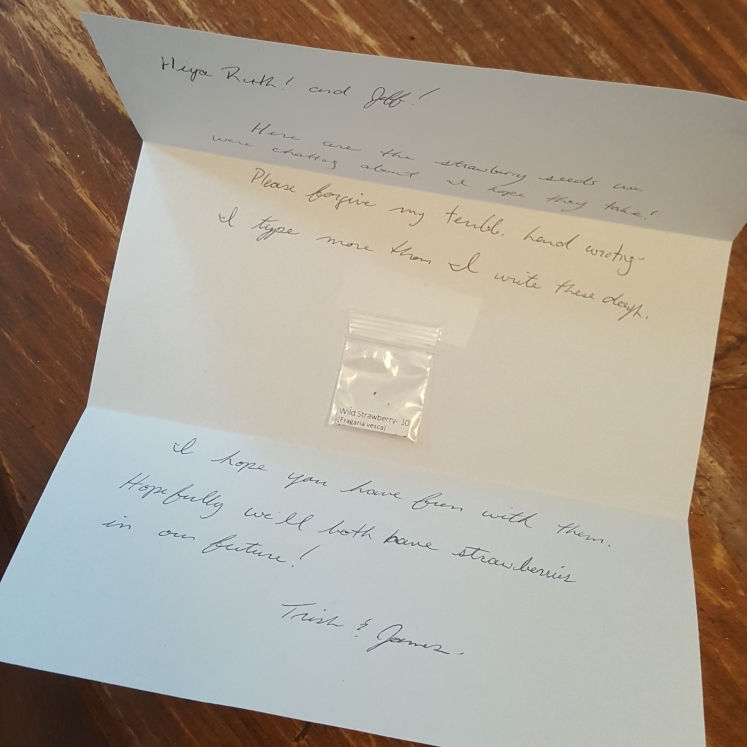 Hiya Ruth! and Jeff!
Here are the strawberry seeds we
were chatting about I hope they take!
Please forgive my terrible hand writing
I type more than I write these days.
Wild Strawberry- 10
(Fragaria vesca)
I hope you have fun with them.
Hopefully we'll both have strawberries
in our future!
Trish & James.